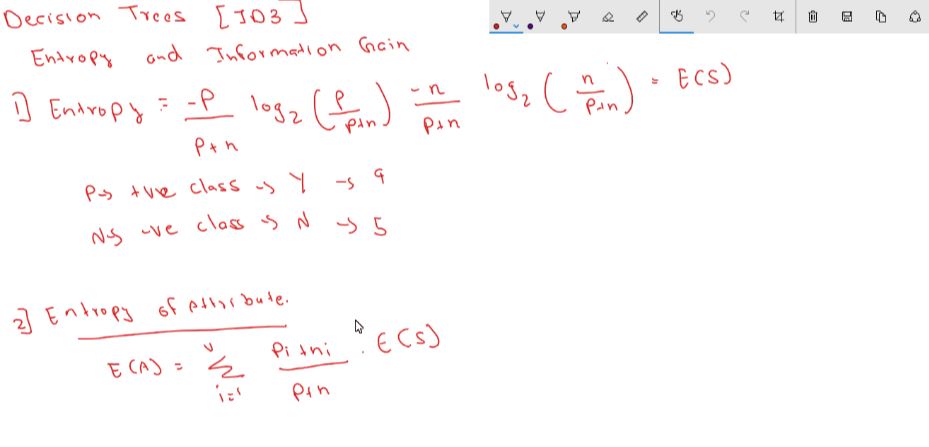 Decision Trees [ID3]
Entropy and Information Gain
1] Entropy = -P/P+n log2 (P/P+n) -n/P+n log2 (n/P+n) = E(S)
P→ +ve class → Y → 9
N→ -ve class → N → 5
2] Entropy of Attribute.
E(A) = v Σ i=1 Pi+ni/P+n . E(S)